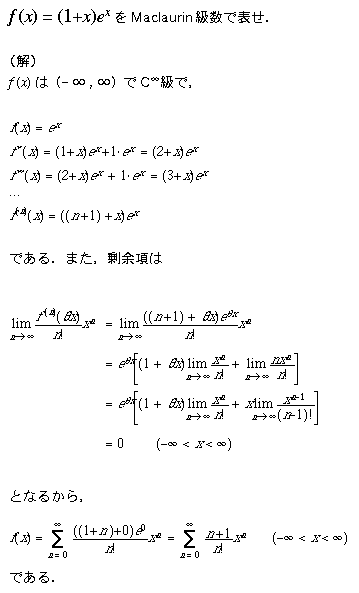 f(x) = (1+x)eˣ を Maclaurin 級数で表せ．
（解）
f(x) は（− ∞ , ∞）で C∞級で，
f(x) = eˣ
f′(x) = (1+x)eˣ+1· eˣ = (2+x)eˣ
f″(x) = (2+x)eˣ + 1· eˣ = (3+x)eˣ
…
f⁽ⁿ⁾(x) = ((n+1) + x)eˣ
である．また，剰余項は
lim_{n→∞} f⁽ⁿ⁾(θx)/n! xⁿ = lim_{n→∞} ((n+1) + θx)e^{θx}/n! xⁿ
= e^{θx}[(1 + θx) lim_{n→∞} xⁿ/n! + lim_{n→∞} nxⁿ/n!]
= e^{θx}[(1 + θx) lim_{n→∞} xⁿ/n! + x lim_{n→∞} xⁿ⁻¹/(n−1)!]
= 0 (−∞ < x < ∞)
となるから，
f(x) = Σ_{n=0}^{∞} ((1+n)+0)e⁰/n! xⁿ = Σ_{n=0}^{∞} n+1/n! xⁿ (−∞ < x < ∞)
である．